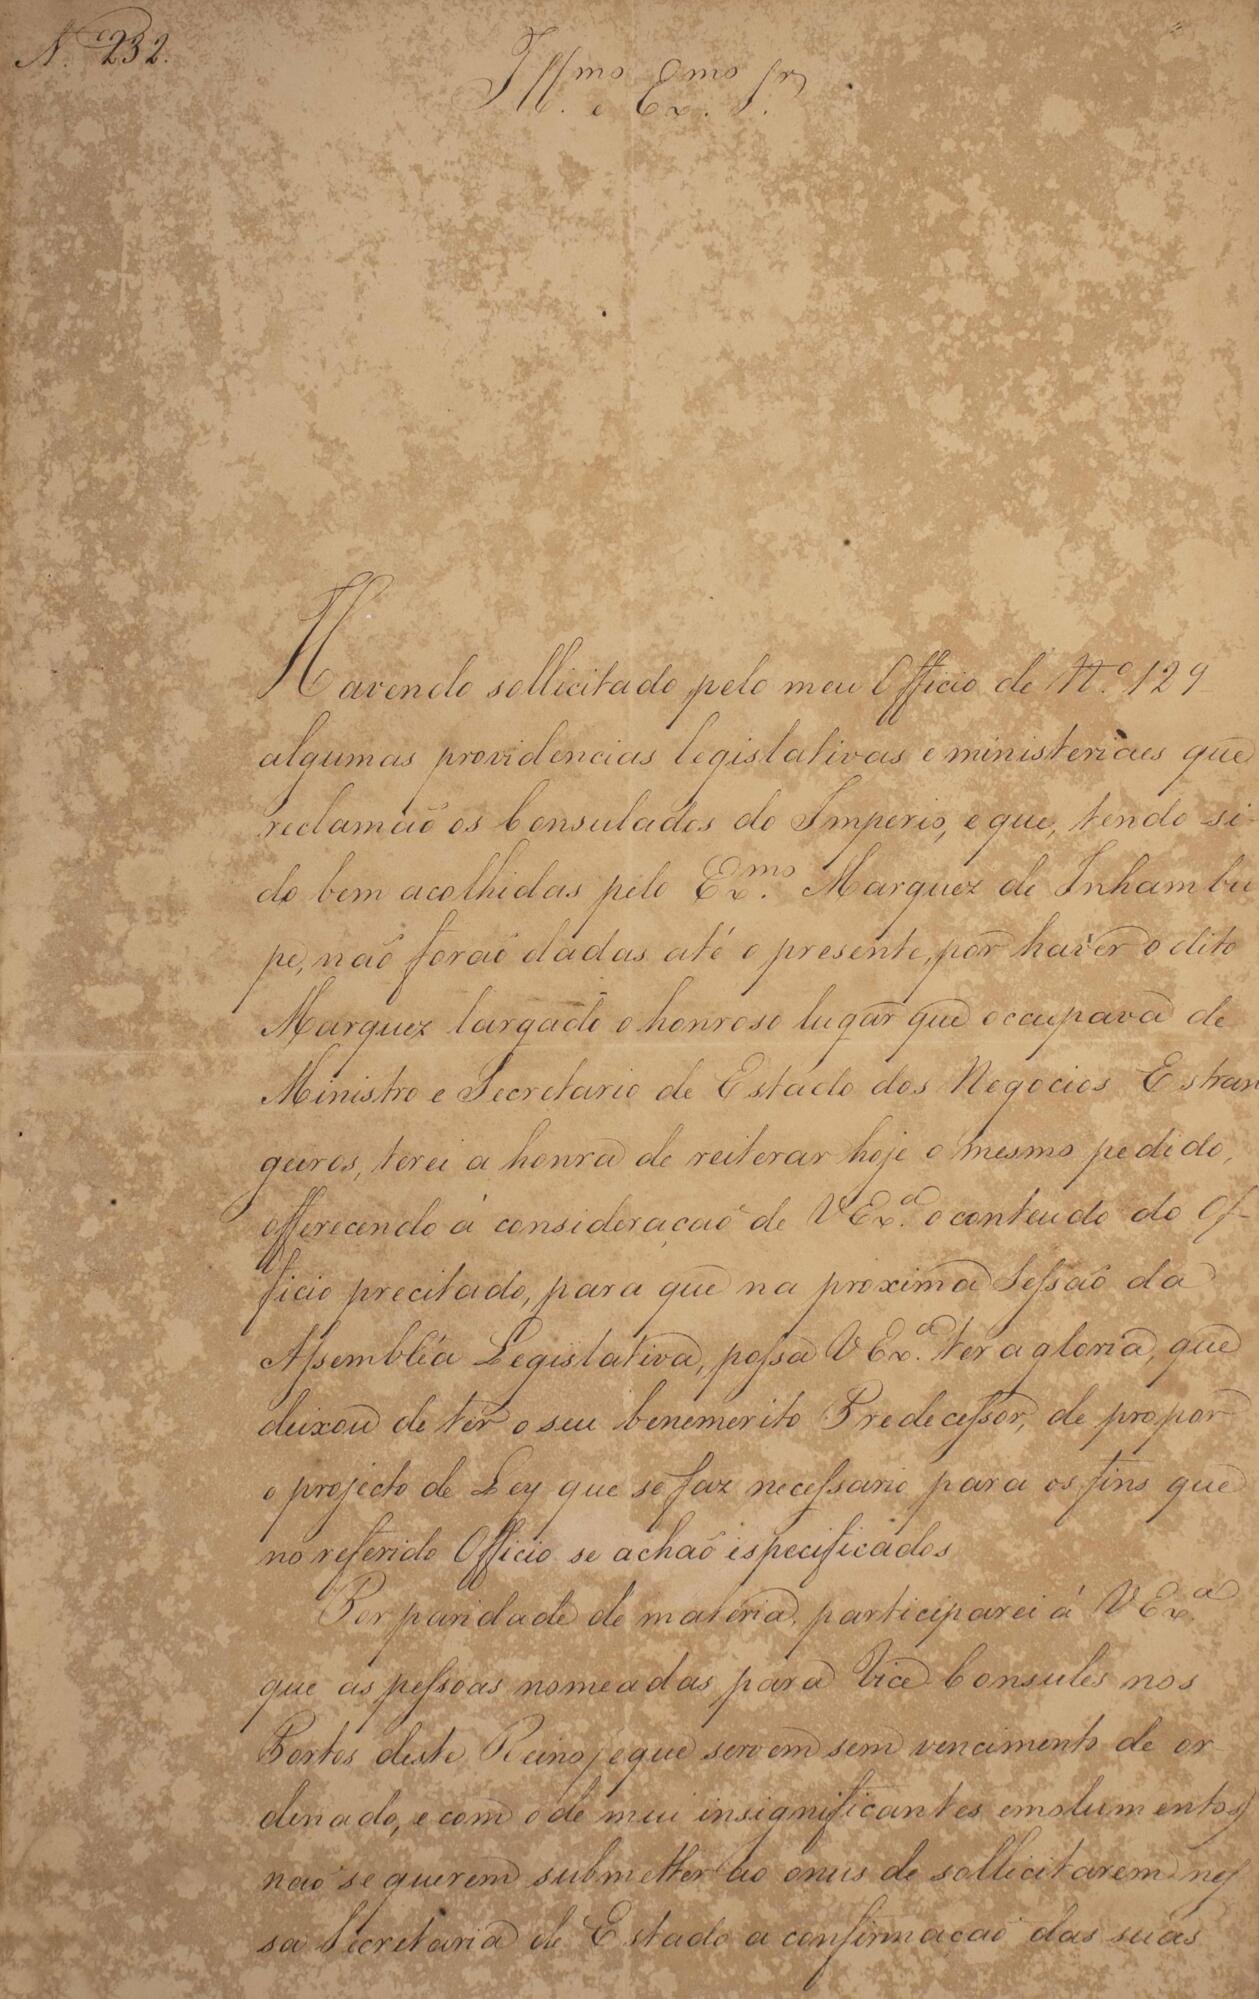 N.º 232.
Ill.mo e Ex.mo Snr.
Havendo sollicitado pelo meu Officio de N.º 129
algumas providencias legislativas e ministeriaes que
reclamão os Consulados do Imperio, e que, tendo si-
do bem acolhidas pelo Ex.mo Marquez de Inhambu
pe, naõ foraõ dadas até o presente, por haver o dito
Marquez largado o honroso lugar que occupava de
Ministro e Secretario de Estado dos Negocios Estran
geiros, terei a honra de reiterar hoje o mesmo pedido,
offerecendo á consideraçaõ de V Ex.a o conteudo do Of-
ficio precitado, para que na proxima Sessaõ da
Assembléa Legislativa, possa V Ex.a ter a gloria, que
deixou de ter o seu benemerito Predecessor, de propor
o projecto de Ley que se faz necessario para os fins que
no referido Officio se achaõ especificados
Por paridade de materia, participarei á V Ex.a
que as pessoas nomeadas para Vice Consules nos
Portos deste Reino, e que servem sem vencimento de or
denado, e com o de mui insignificantes emolumentos,
naõ se querem submetter ao onus de sollicitarem nes
sa Secretaria de Estado a confirmaçaõ das suas